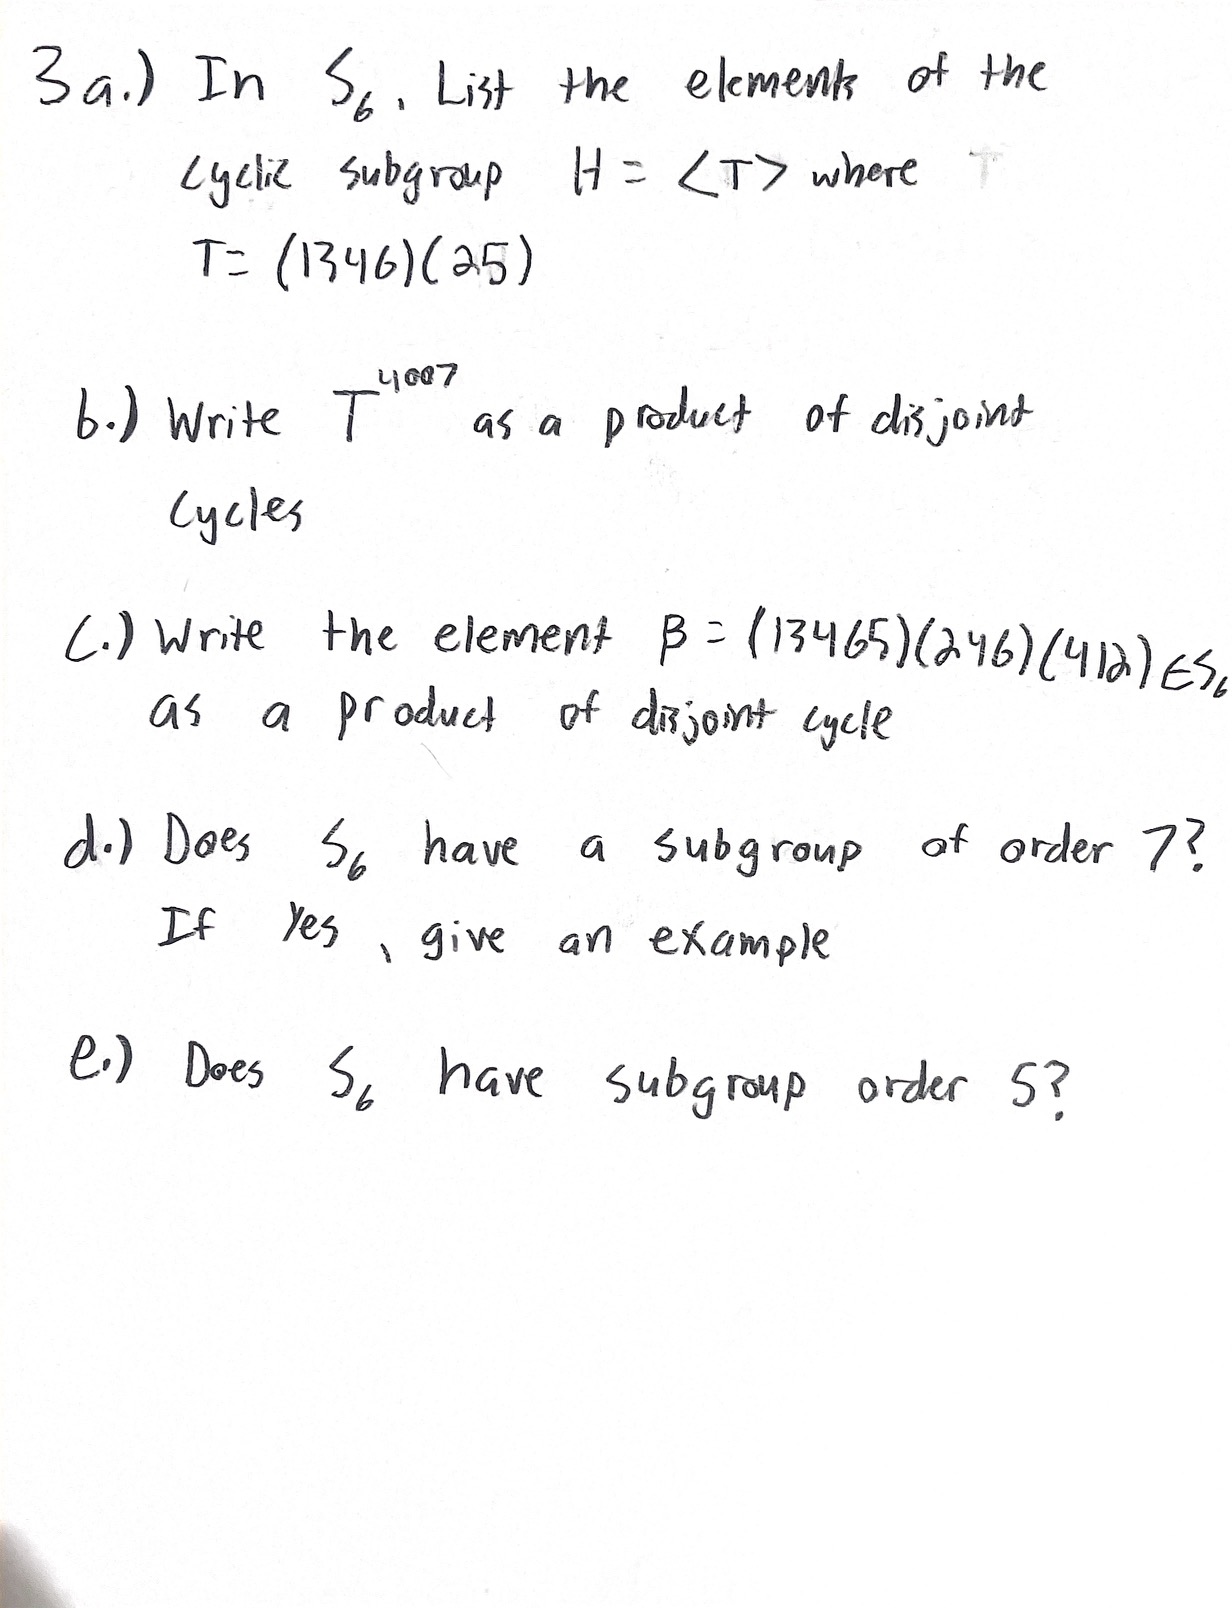 3a.) In S₆, List the elements of the
cyclic subgroup H = <T> where T
T= (1346)(25)
b.) Write T⁴⁰⁰⁷ as a product of disjoint
cycles
c.) Write the element β = (13465)(246)(412) ∈S₆
as a product of disjoint cycle
d.) Does S₆ have a subgroup of order 7?
If Yes, give an example
e.) Does S₆ have subgroup order 5?